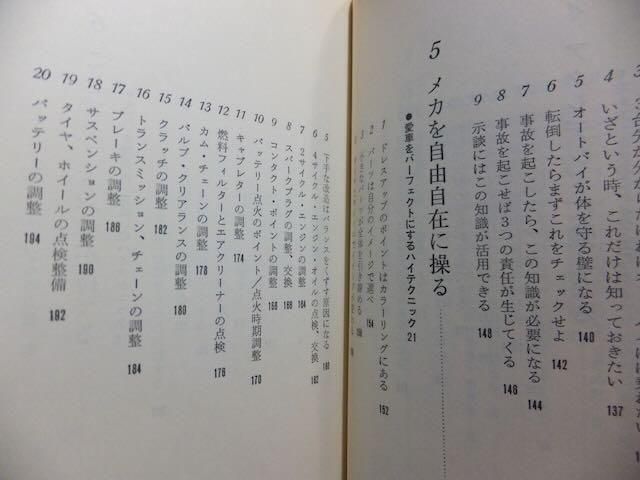 4 いざという時、これだけは知っておきたい 137
5 オートバイが体を守る壁になる 140
6 転倒したらまずこれをチェックせよ 142
7 事故を起こしたら、この知識が必要になる 144
8 事故を起こせば3つの責任が生じてくる 146
9 示談にはこの知識が活用できる 148
5 メカを自由自在に操る
●愛車をパーフェクトにするハイテクニック21
1 ドレスアップのポイントはカラーリングにある 152
2 パーツは自分のイメージで選べ 154
5 下手な改造はバランスをくずす原因になる 160
6 4サイクル・エンジン・オイルの点検、交換 162
7 2サイクル・エンジンの調整 164
8 スパークプラグの調整、交換 166
9 コンタクト・ポイントの調整 168
10 バッテリー点火のポイント/点火時期調整 170
11 キャブレターの調整 174
12 燃料フィルターとエアクリーナーの点検 176
13 カム・チェーンの調整 178
14 バルブ・クリアランスの調整 180
15 クラッチの調整 182
16 トランスミッション、チェーンの調整 184
17 ブレーキの調整 186
18 サスペンションの調整 190
19 タイヤ、ホイールの点検整備 192
20 バッテリーの調整 194